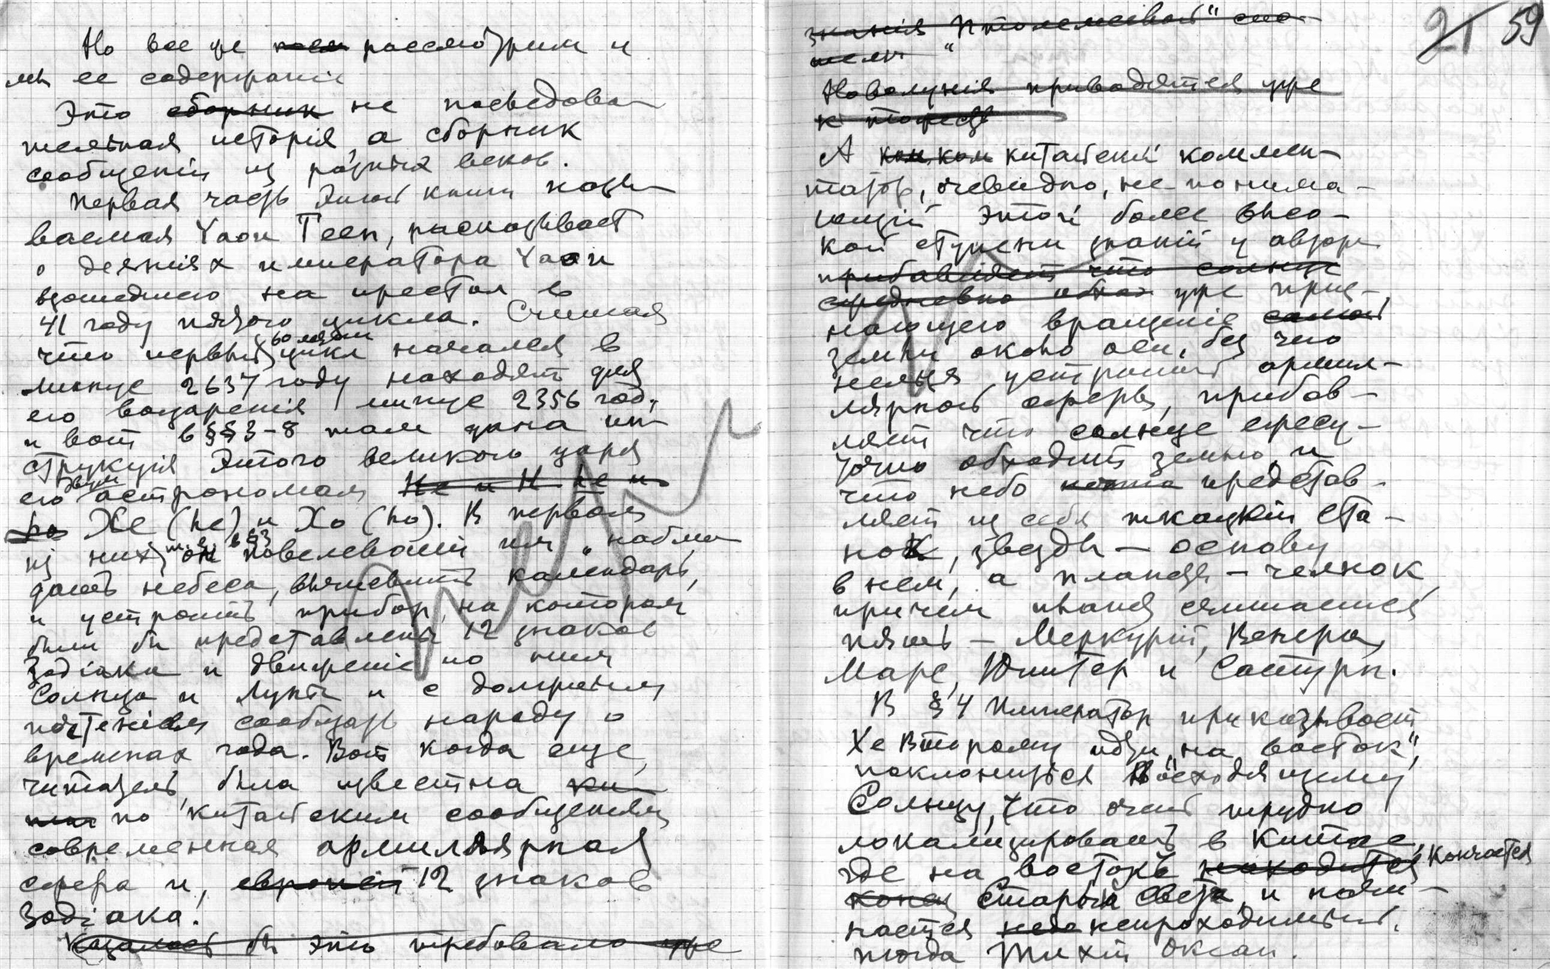 Но все же рассмотрим и
мы ее содержание
Это сборник не последова
тельная исторія, а сборник
сообщеній из разных веков.
Первая часть этой книги назы
ваемая Yaou Теен, расказывает
о деяніях императора Yaou
взошедшего на престол в
41 году пятого цикла. Считая
что первый 60 летний цикл начался в
минус 2637 году находят для
его воцаренія минус 2356 год,
и вот в §§ 3-8 там дана ин
струкція этого великого царя
его двум астрономам Не и Н не но
Хе (he) и Хо (ho). В первом
из них, т. е. в § 3 он повелевает им „наблю
дать небеса, вычислить календарь,
и устроить прибор, на котором
были бы представлены 12 знаков
Зодіака и движеніе по ним
Солнца и Луны и с должным
почтеніем сообщать народу о
временах года. Вот когда еще,
читатель, была известна
по китайским сообщеніям
современная армиллярная
сфера и, европей 12 знаков
Зодіака!
Казалось бы это требовало уже
знанія Птолемеевой" сис
темы "
Новолунія приводятся уже
к
А китайскій коммен
татор, очевидно, не понима-
ющій этой более высо-
кой ступени знаній у автора
прибавляет что солнце
ежедневно уже приз-
нающего вращеніе самой
земли около оси, без чего
нельзя устроить армил-
лярной сферы, прибав-
ляет что солнце ежесу-
точно обходит землю и
что небо представ-
ляет из себя ткацкій ста-
нок, звезды — основу
в нем, а планеты — челнок,
причем планет считается
пять — Меркурій, Венера,
Марс, Юпитер и Сатурн.
В § 4 Император приказывает
Хе Второму идти „на восток",
поклониться Восходящему
Солнцу, что очень трудно
локализировать в Китае,
где на востоке находится кончается
конец Старый Свет и начи-
нается непроходимый
тогда Тихій Океан.
21 59